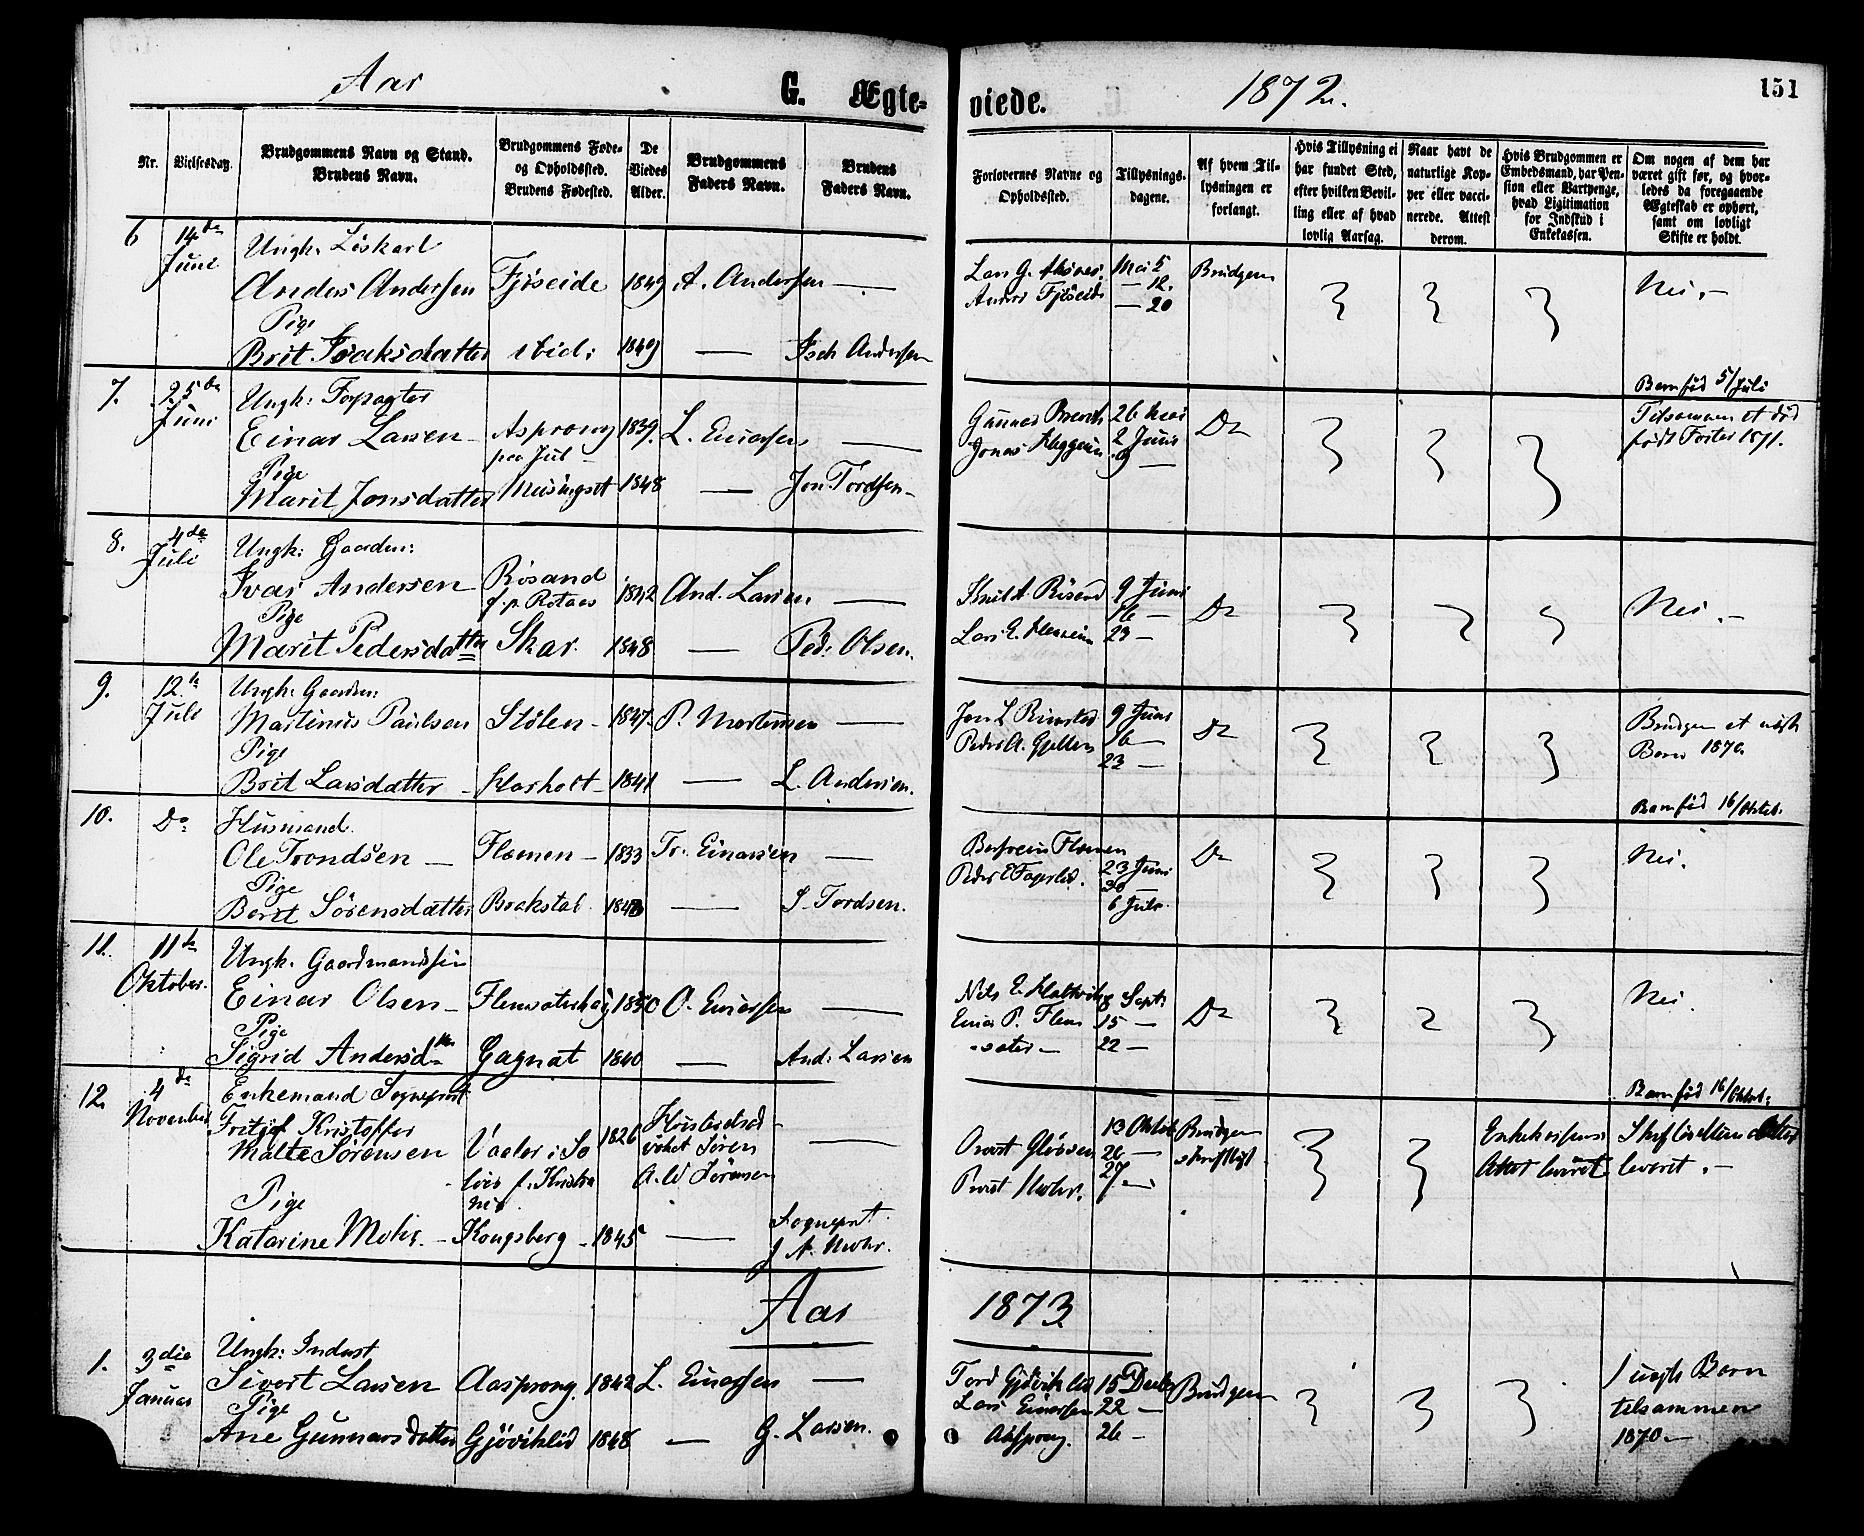 Aar
G. Ægte-
viede.
1872.
151
Nr.
Vielsesdag.
Brudgommens Navn og Stand.
Brudens Navn.
Brudgommens Føde-
og Opholdssted.
Brudens Fødested.
De
Viedes
Alder.
Brudgommens
Faders Navn.
Brudens
Faders Navn.
Forlovernes Navne og
Opholdssted.
Tillysnings-
dagene.
Af hvem Til-
lysningen er
forlangt.
Hvis Tillysning ei
har fundet Sted,
efter hvilken Bevil-
ling eller af hvad
lovlig Aarsag.
Naar havt de
naturlige Kop-
per eller vacci-
nerede. Attest
derom.
Hvis Brudgommen er
Embedsmand, har Pen-
sion eller Vartpenge,
hvad Ligitimation
for Indskud i
Enkekassen.
Om nogen af dem har
været gift før, og hvor-
ledes da foregaaende
Ægteskab er ophørt,
samt om lovligt
Skifte er holdt.
6
14de
Juni
Ungk.
Anders Andersen
Fjøseide
1849
A. Andersen
Pige
Brit Isaksdatter
ibid:
1849
Andersen
Lars G.
Anders Fjøseide
Mai 5
— 12.
— 20
Brudgom
Nei. —
7.
25de
Juni
Ungk: Forpagter
Einar Larsen
Asprong
paa Jul
1839.
L. Einarsen
Pige
Marit Jonsdatter
Meisingset
1848
Jon Tordsen
Gunnar
Jonas
26 Mai
2 Juni
9 —
Do
Barnfød 5/Juli
Tilsammen et død
født Foster 1871.
8.
4de
Juli
Ungk: Gaardm:
Ivar Andersen
Røsand
1842
And. Larsen
Pige
Marit Pedersdatter
Skar.
1848
Ped: Olsen.
Knut A. Røsand
Lars E.
9 Juni
16 —
23 —
Do
Nei. —
9.
12te
Juli
Ungk: Gaardm:
Martinus Paulsen
Stølen
1847
P. Mortensen
Pige
Brit Larsdatter
Karholt
1841
L. Andersen.
Jon L Rimsted
Peder A. Gjelten
9 Juni
16 —
23 —
Do
Brudgom et uægte
Barn 1870.
10.
Do
Husmand.
Ole Trondsen
Flemen
1833
Tr. Einarsen
Pige
Berit Sørensdatter
Brakstad
S. Tordsen.
Flemen
Peder E Fagerlid.
23 Juni
30 —
6 Juli
Do
Barnfød 16/Oktob.
Nei.
11.
11te
Oktober.
Ungk. Gaardmandssøn
Einar Olsen
1850
O. Einarsen
Pige
Sigrid Andersdtr
Gagnat
1840
And: Larsen
Nils E.
Einar P. Flem
sæter
8 Sept
15 —
22 —
Do
Nei.
12.
4de
November
Enkemand Sogneprest
Fritjof Kristoffer
Malte Sørensen
Vaaler i So
løer f. Kristia
nia.
1826
Søren
Sørensen
Pige
Katarine Mohr
Kongsberg
1845
Sogneprst
J A. Mohr.
Provst Gløersen
Provst Mohr.
13 Oktob
20 —
27 —
Brudgom
skriftligt
Attest leveret
Barnfød 16/Oktob:
leveret. —
Aar
1873
1.
3die
Januar
Ungk: Inderst
Sivert Larsen
Aasprong.
1842
L. Einarsen
Pige
Ane Gunnarsdatter
Gjøviklid
1848
G. Larsen.
Tord Gjøviklid
Lars Einarsen
Aasprong.
15 Decbr
22 —
26 —
Brudgom
1 uægte Barn
tilsammen
1870 —